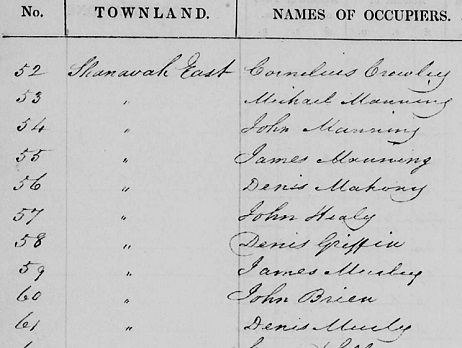 No. TOWNLAND. NAMES OF OCCUPIERS.
52 Shanavah East Cornelius Crowley
53 " Michael Manning
54 " John Manning
55 " James Manning
56 " Denis Mahony
57 " John Healy
58 " Denis Griffin
59 " James
60 " John Brien
61 " Denis